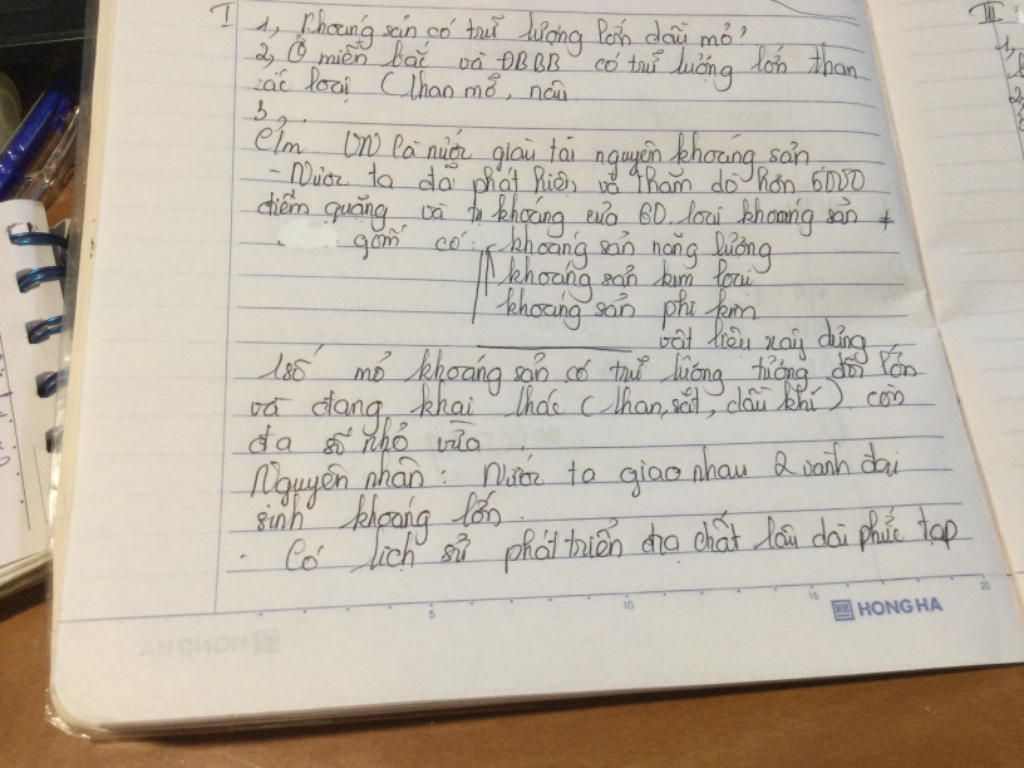 I 1, khoáng sản có trữ lượng lớn dầu mỏ'
2, Ở miền bắc và ĐBBB có trữ lượng lớn than
các loại (than mỡ, nâu
3,.
VN là nước giàu tài nguyên khoáng sản
- Nước ta đã phát hiện và thăm dò hơn 5000
điểm quặng và tụ khoáng của 60. loại khoáng sản +
gồm có: khoáng sản năng lượng
khoáng sản kim loại
khoáng sản phi kim
vật liệu xây dựng
1 số mỏ khoáng sản có trữ lượng tương đối lớn
và đang khai thác (than, sắt, dầu khí) còn
đa số nhỏ vừa
Nguyên nhân: Nước ta giao nhau 2 vành đai
sinh khoáng lớn.
- Có lịch sử phát triển địa chất lâu dài phức tạp
5 10 15 20
HH HONG HA
III
1,
2,